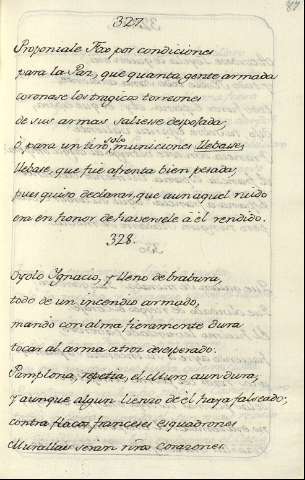 327.
Proponzale Fox por condiciones
para la Paz, que quanta gente armada
coronase los tragicos torreones
de sus armas saliese despojada;
ò para un tiro solo municiones llebase;
llebase, que fué afrenta bien pesada;
pues quiso declarar, que aun aquel ruido
era en honor de haversele á él rendido.
328.
Oyolo Ignacio, y lleno de brabura,
todo de un yncendio armado,
mandó con alma fieramente dura
tocar al arma atroz desesperado:
Pamplona, repetia, el Muro aun dura;
y aunque algun lienzo de él haya falseado;
contra flacos franceses esquadrones
Murallas serán nros corazones.